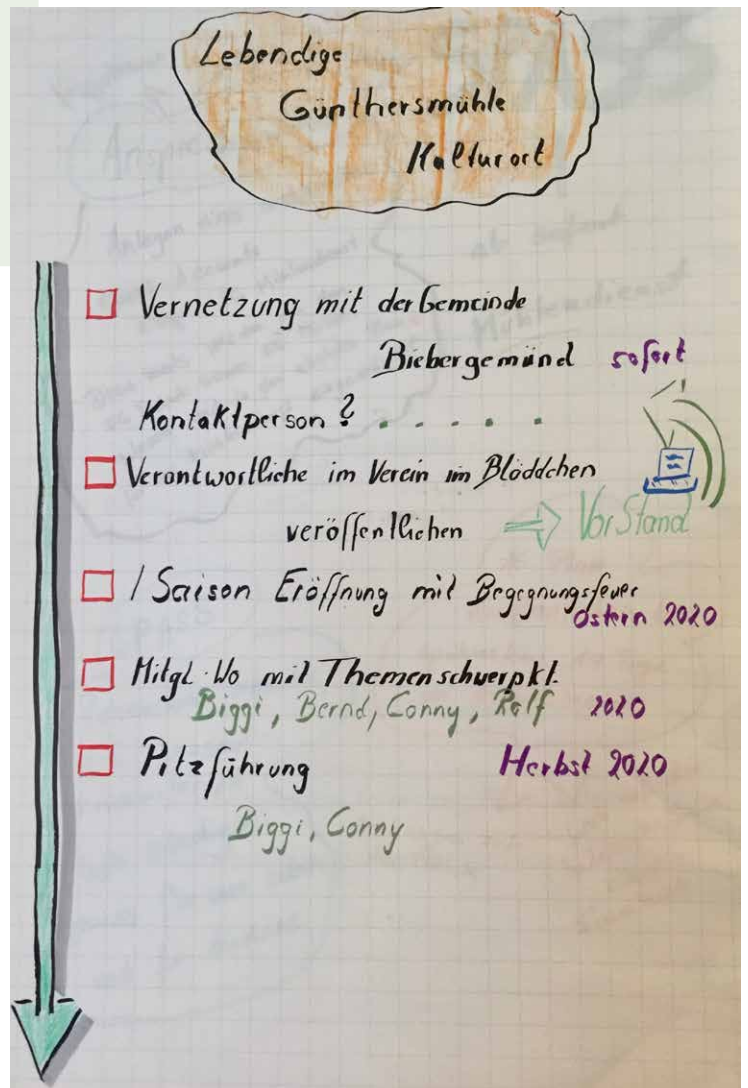 Lebendige
Günthersmühle
Kulturort
Vernetzung mit der Gemeinde
Biebergemünd sofort
Kontaktperson ? . . . . .
Verantwortliche im Verein im Blöddchen
veröffentlichen ⇒ VorStand
/ Saison Eröffnung mit Begegnungsfeuer
Ostern 2020
Mitgl. Wo mit Themenschwerpkt.
Biggi, Bernd, Conny, Ralf 2020
Pilzführung Herbst 2020
Biggi, Conny